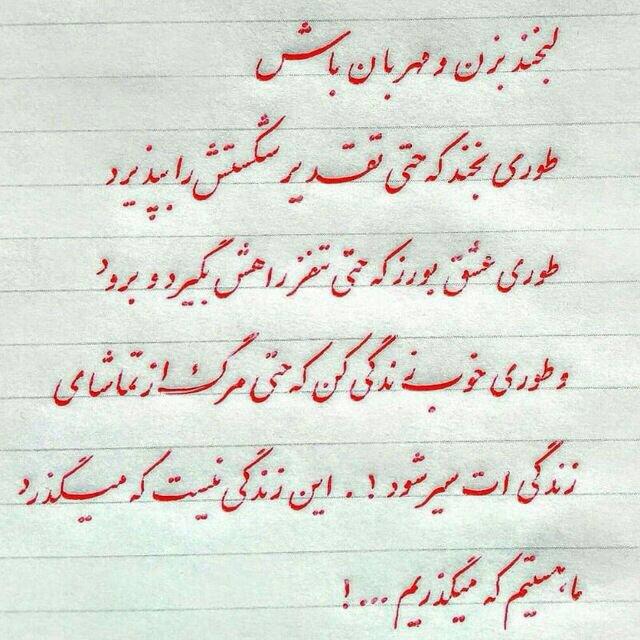 لبخند بزن و مهربان باش
طوری بخند که حتی تقدیر شکستش را بپذیرد
طوری عشق بورز که حتی تنفر راهش بگیرد و برود
و طوری خوب زندگی کن که حتی مرگ از تماشای
زندگی ات سیر شود ! . این زندگی نیست که میگذرد
ما هستیم که میگذریم ... !